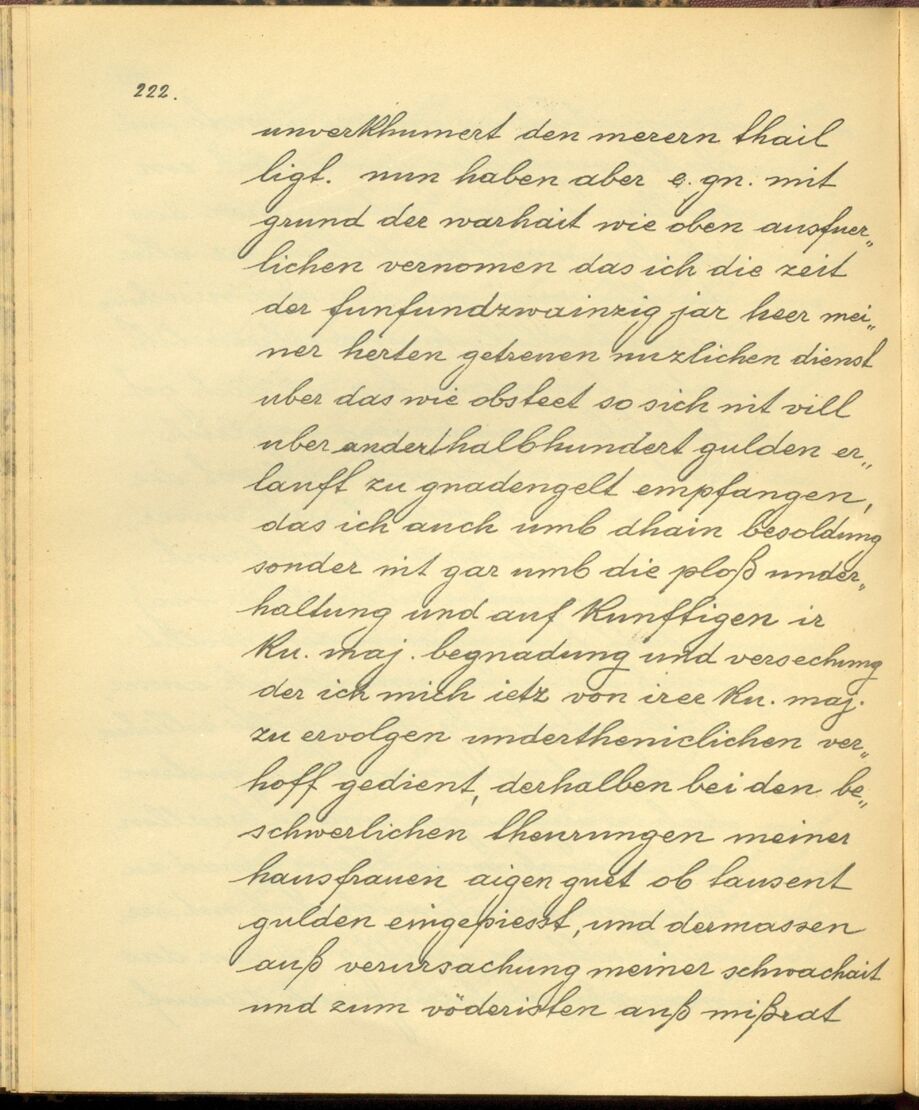 222.
unverkhumert den merern thail
ligt. nun haben aber e. gn. mit
grund der warhait wie oben ausfuer„
lichen vernomen das ich die zeit
der funfundzwainzig jar heer mei„
ner herten getreuen nuzlichen dienst
uber das wie obsteet so sich nit vill
uber anderthalbhundert gulden er„
lauft zu gnadengelt empfangen,
das ich auch umb dhain besoldung
sonder nit gar umb die ploß under„
haltung und auf kunftigen ir
ku. maj. begnadung und versechung
der ich mich ietz von iree ku. maj.
zu ervolgen undertheniclichen ver„
hoff gedient, derhalben bei den be„
schwerlichen theurungen meiner
hausfrauen aigen guet ob tausent
gulden eingepiesst, und dermassen
auß verursachung meiner schwachait
und zum vöderisten auß mißrat